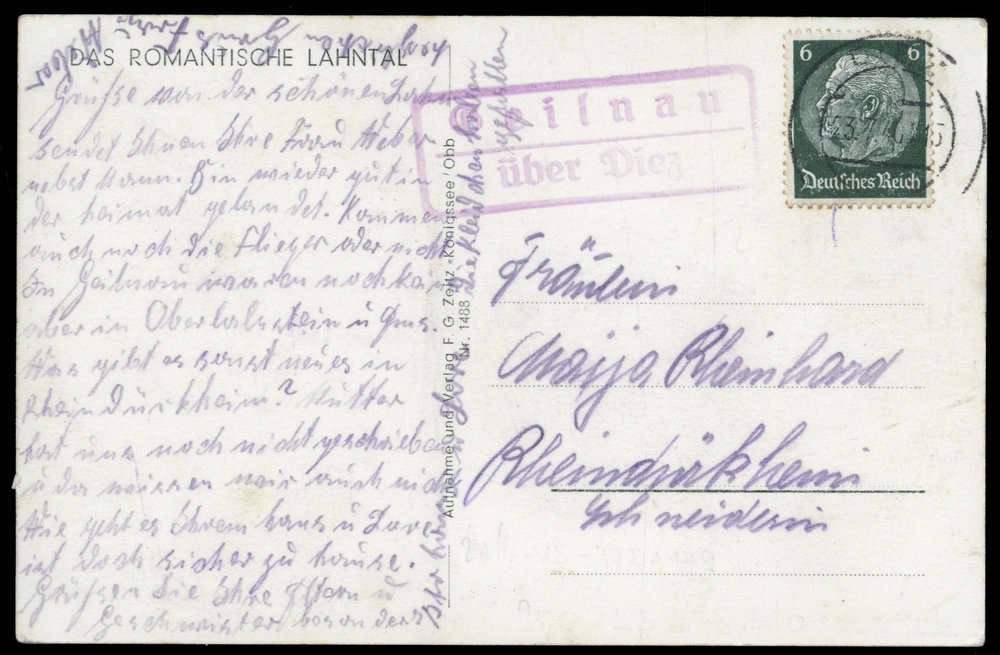 DAS ROMANTISCHE LAHNTAL
Grüsse von der schönen Lahn
sendet Ihnen Ihre Frau Weber
nebst Mann. Bin wieder gut in
der heimat gelandet. Kommen
auch noch die Flieger oder nicht
In Geilnau waren noch kein
aber in Oberlahnstein u Ems.
Was gibt es sonst neues in
Rheindürkheim? Mutter
hat uns noch nicht geschrieben
u da wissen wir auch nich
Wie geht es Ihrem hans u
ist doch sicher zu hause.
Grüssen Sie Ihre Eltern u
Geschwister besonders
Die Kleidchen haben
gefallen
Aufnahme und Verlag F. G. Zeitz · Königssee / Obb
Nr. 1488
Geilnau
über Diez
6 6
Deutsches Reich
Fräulein
Rheinhard
Rheindürkheim
Schneiderin